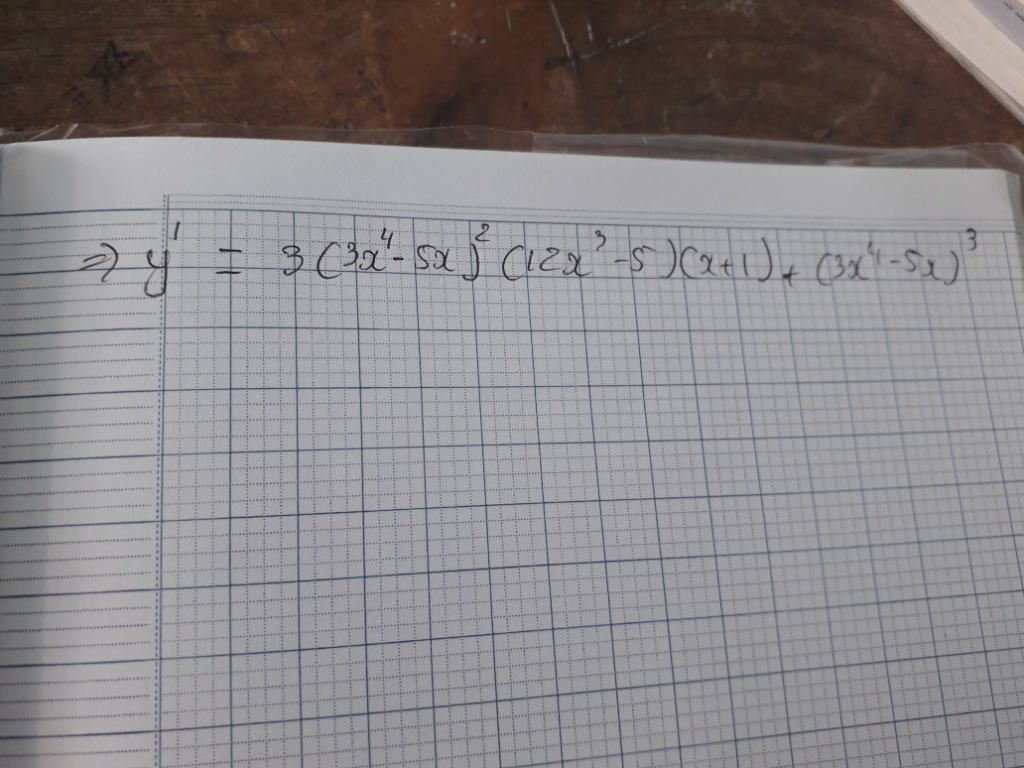 ⇒ y' = 3(3x⁴-5x)² (12x³-5)(x+1) + (3x⁴-5x)³